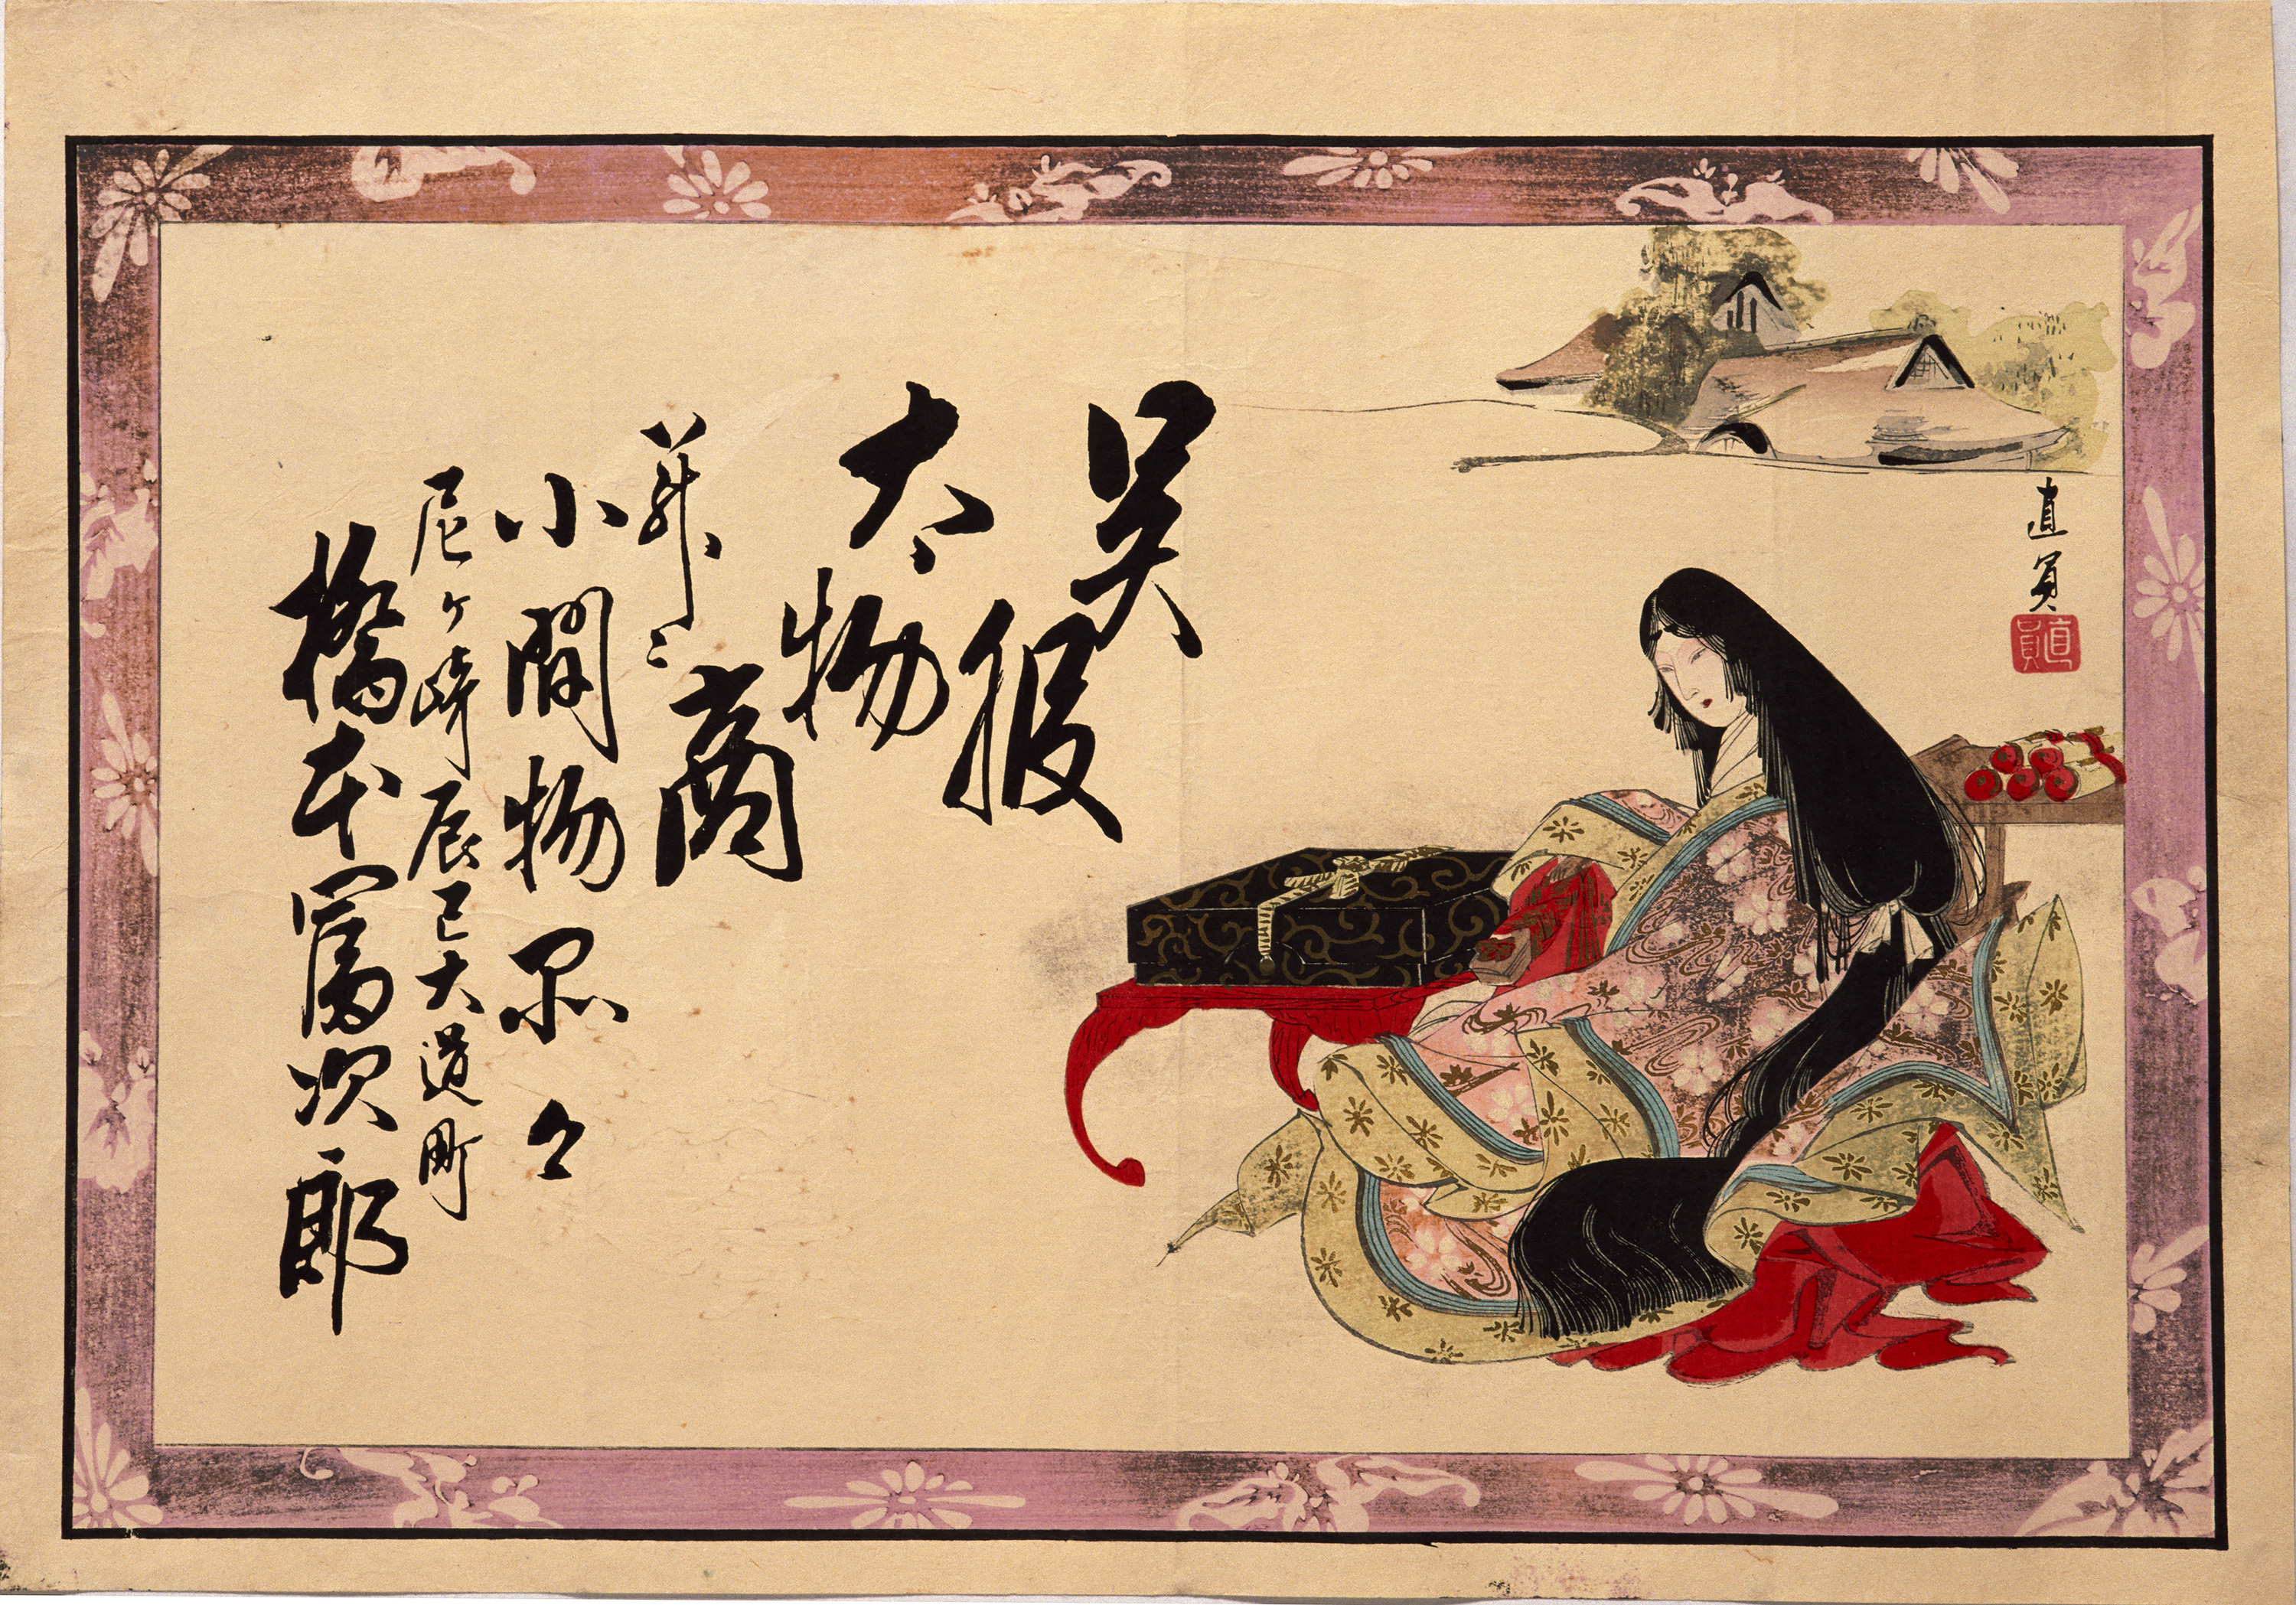 直員
直員
呉服
太物
商
并ニ
小間物品々
尼ヶ崎辰巳大道町
橋本富次郎